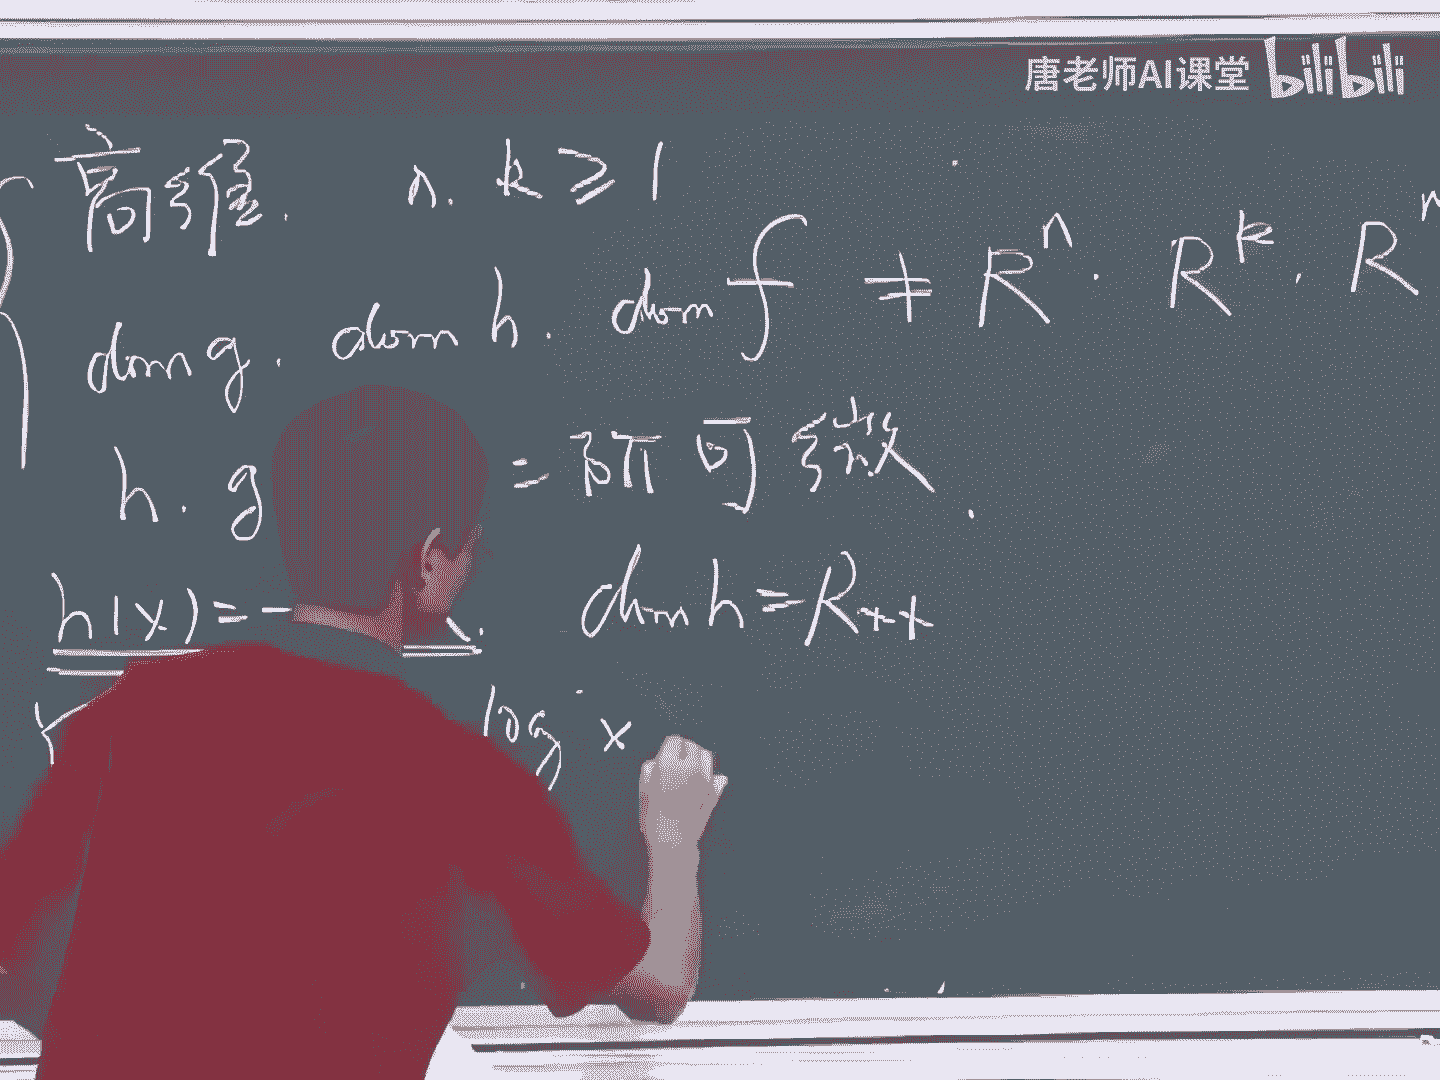 唐老师AI课堂 bilibili
高维. n. k ≥ 1
dom g. dom h. dom f ≠ R^n. R^k. R^n
h. g = 阶可微.
h(x) = - x. dom h = R++
log x